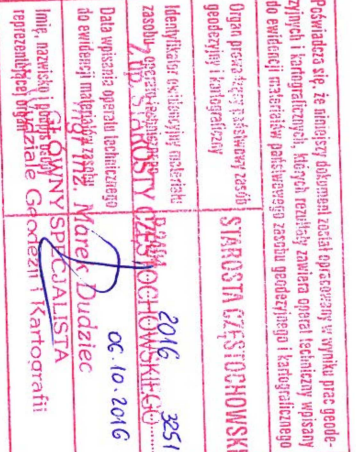 Poświadcza się, że niniejszy dokument został opracowany w wyniku prac geode-
zyjnych i kartograficznych, których rezultaty zawiera operat techniczny wpisany
do ewidencji materiałów państwowego zasobu geodezyjnego i kartograficznego
Organ prowadzący państwowy zasób
geodezyjny i kartograficzny
STAROSTA CZĘSTOCHOWSKI
Identyfikator ewidencyjny materiału
zasobu - operatu technicznego
2016 3251
Z up. STAROSTY CZĘSTOCHOWSKIEGO
Data wpisania operatu technicznego
do ewidencji materiałów zasobu
06.10.2016
mgr inż. Marek Dudziec
Imię, nazwisko i podpis osoby
reprezentującej organ
GŁÓWNY SPECJALISTA
Wydziale Geodezji i Kartografii